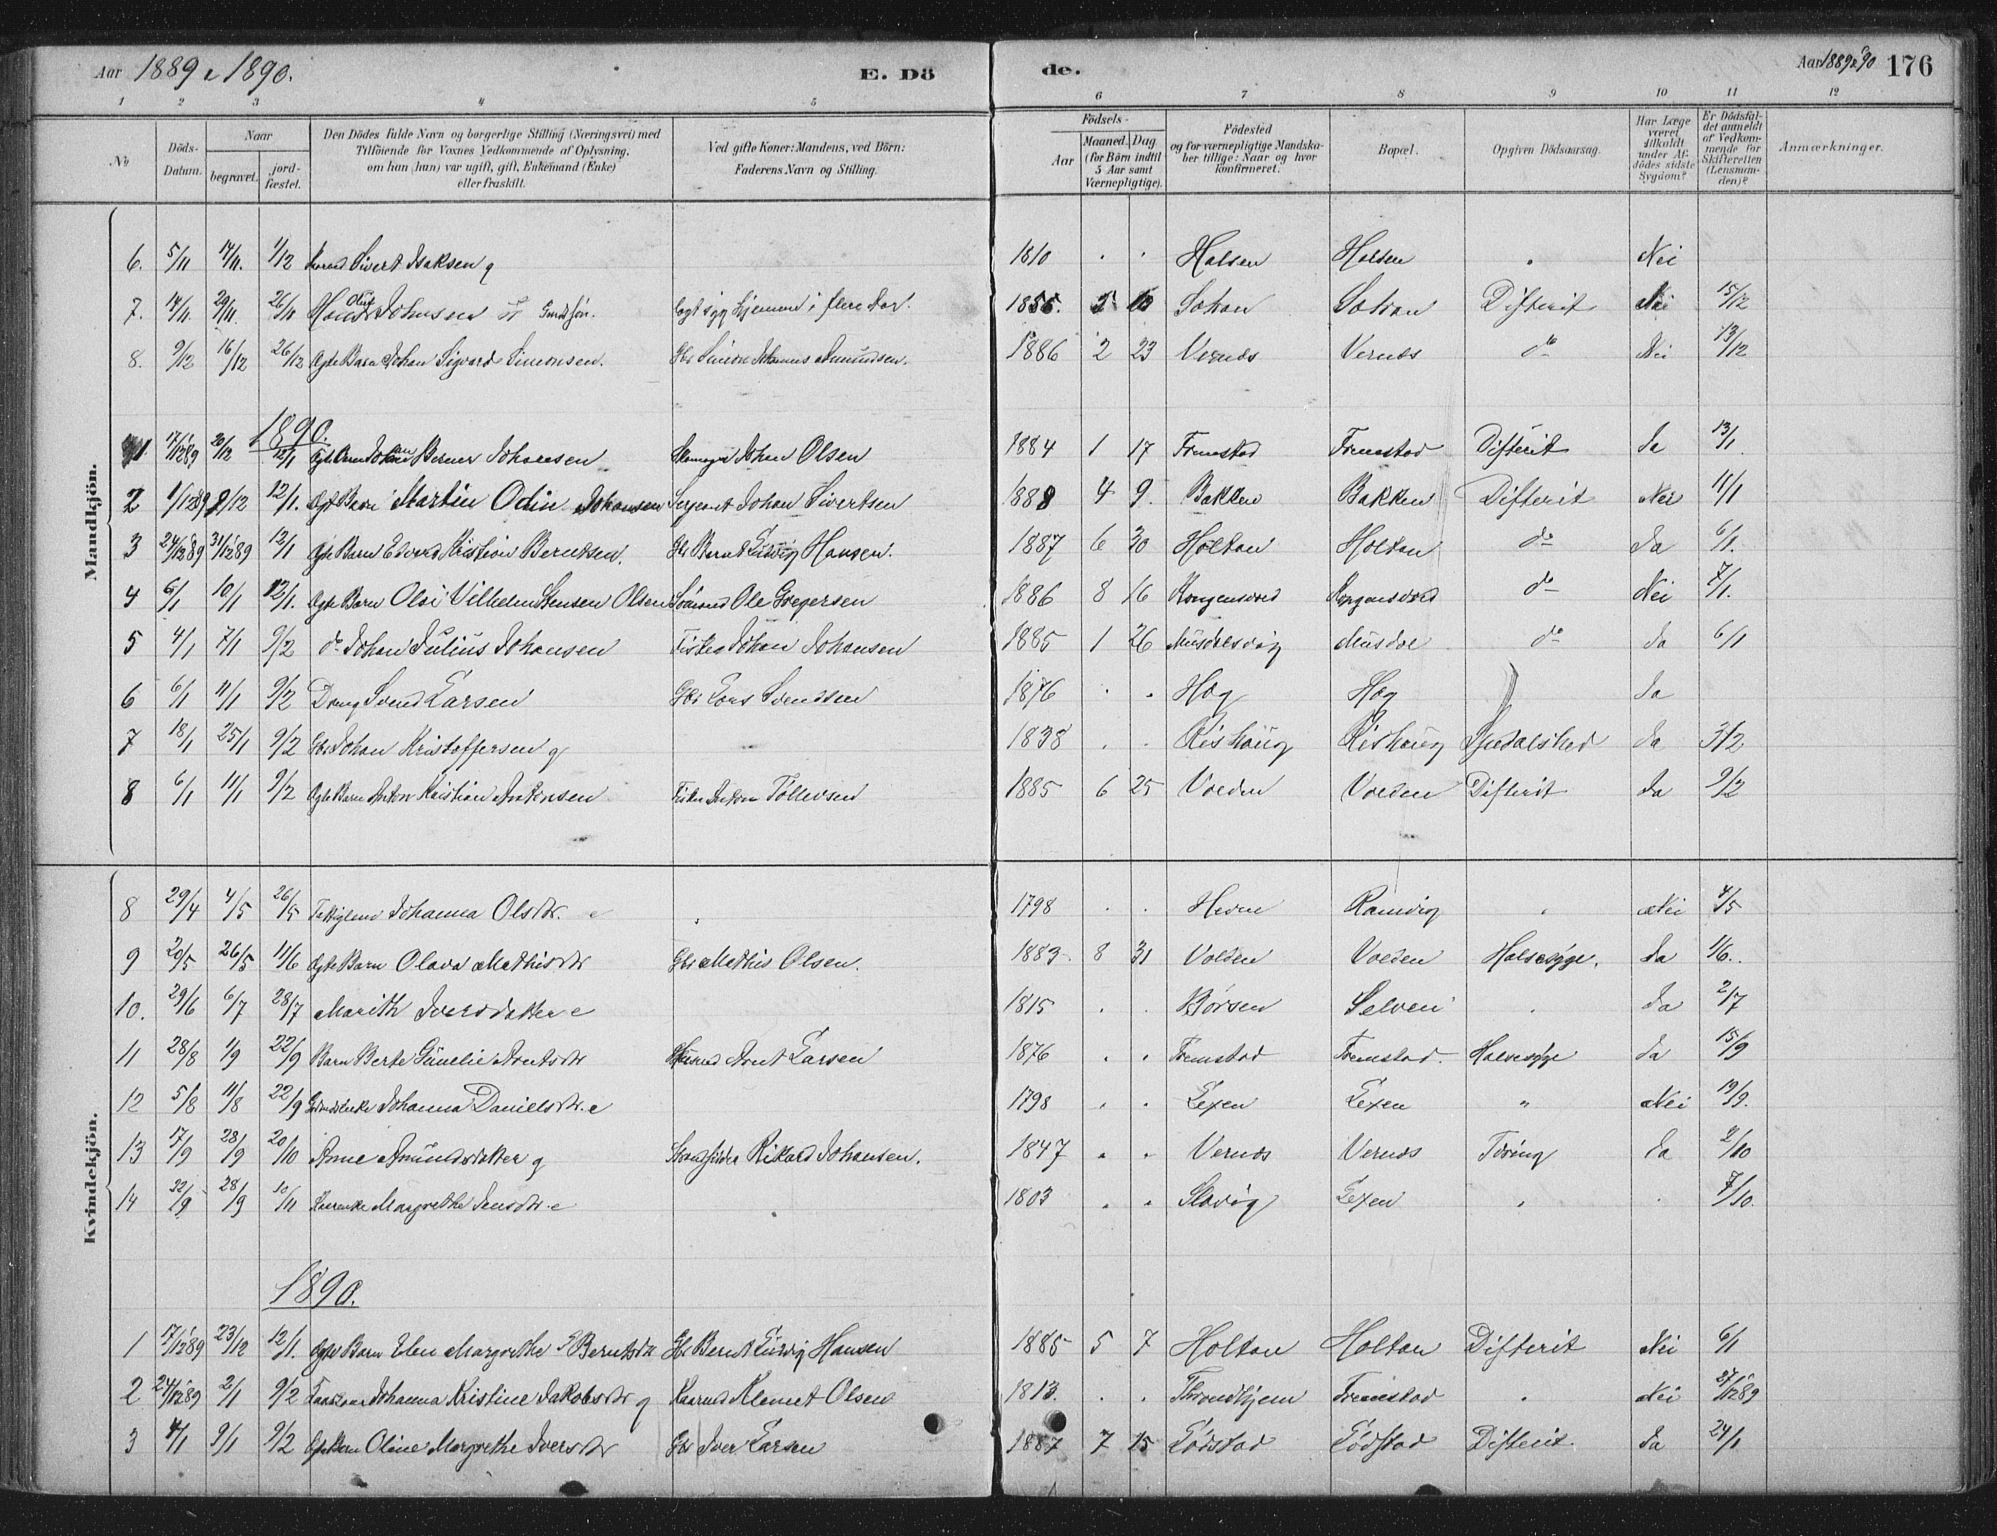 Aar 1889 & 1890. E. Dö de. Aar 1889 & 90 176
1 2 3 4 5 6 7 8 9 10 11 12
No
Döds-Datum.
Naar
begravet.
jord-fæstet.
Den Dödes fulde Navn og borgerlige Stilling (Næringsvei) med
Tilföiende for Voxnes Vedkommende af Oplysning,
om han (hun) var ugift, gift, Enkemand (Enke)
eller fraskilt.
Ved gifte Koner: Mandens, ved Börn:
Faderens Navn og Stilling.
Födsels-
Aar
Maaned. Dag
(for Börn indtil
5 Aar samt
Værnepligtige).
Födested
og for værnepligtige Mandska-
ber tillige: Naar og hvor
konfirmeret.
Bopæl.
Opgiven Dödsaarsag.
Har Læge
været
tilkaldt
under Af-
dödes sidste
Sygdom?
Er Dödsfal-
det anmeldt
af Vedkom-
mende for
Skifteretten
(Lensman-
den)?
Anmærkninger.
Mandkjön.
6. 5/11 17/11. 1/12 Sivert Isaksen g 1810 . . Halsen Halsen . Nei
7. 14/11 29/11 26/11 Hans Oluf Johnsen 1855. 5 10 Sohan Sohan Difterit Nei 15/12
8. 9/12 16/12 26/12 Ægte Barn Johan Sigvard Simonsen. Gbr Simon Johannes Amundsen. 1886 2 23 Vernæs Vernæs do Nei 13/12
1890.
1 17/12 89 20/12 12/1 Ægte Barn Johan Berner Johansen Johan Olsen 1884 1 17 Fremstad Fremstad Difterit Ja 13/1
2 1/12 89 9/12 12/1. Ægte Barn Martin Odin Johansen Sergeant Johan Sivertsen 1888 4 9. Bakken Bakken Difterit Nei 11/1
3 24/12 89 31/12 89 12/1 Ægte Barn Edvard Kristian Berntsen. Gbr Bernt Ludvig Hansen. 1887 6 30 Holtan Holtan do Ja 6/1.
4 6/1 10/1 12/1. Ægte Barn Olsi Vilhelm Stensen Olsen Ole Gregersen 1886 8 16 Kongensvold Kongensvold do Nei 7/1.
5 4/1 7/1 9/2 do Johan Julius Johansen Fisker Johan Johansen 1885 1 26 Musdalsvig Musdal do Ja 6/1
6 6/1 11/1 9/2 Dreng Svend Larsen Gbr Lars Svendsen 1876 . . Hag Hag Ja
7 18/1 25/1 9/2 Gbr Johan Kristoffersen g 1838 . . Rishaug Rishaug Spedalsked Ja 3/2
8 6/1 11/1 9/2 Ægte Barn Anton Kristian Antonsen Fisker Anton Tollevsen 1885 6 25 Volden Volden Difterit Ja 9/2
Kvindekjön.
8 29/4 4/5 26/5 Johanna Olsdtr. e 1798 . . Heven Ramvig . Nei 4/5
9 20/5 26/5 11/6 Ægte Barn Olava Mathisdtr Gbr Mathis Olsen. 1883 8 31 Volden Volden Halssyge. Ja 1/6.
10. 29/6 6/7 28/7 Marith Iversdatter e 1815 . . Börsen Selven . Ja 2/7
11 28/8 1/9 22/9 Barn Berte Gunelie Arntsdtr Arnt Larsen 1876 . . Fremstad Fremstad. Halssyge Ja 15/9
12 5/8 11/8 22/9 Johanna Danielsdtr. e 1798 . . Lexen Lexen " Nei 19/9.
13 17/9 28/9 20/10 Anne Amundsdatter g Rikard Johansen. 1847 . . Vernæs Vernæs Tæring Ja 2/10
14 22/9 28/9 10/11 Margrethe Jensdtr. e 1803 . . Slavig Lexen . . 7/10.
1890.
1 17/12 89 23/12 12/1. Ægte Barn Elen Margrethe Berntsdtr Gbr Bernt Ludvig Hansen 1885 5 7 Holtan Holtan Difterit Nei 6/1
2 24/12 89 2/1 9/2 Johanna Kristine Jakobsdtr g Klemet Olsen 1813. . . Throndhjem Fremstad . Nei 27/12 89
3 4/1 9/1 9/2 Ægte Barn Oline Margrethe Iversdtr Gbr Iver Larsen 1887 7 15 Lödstad Lödstad Difterit. Ja 24/1